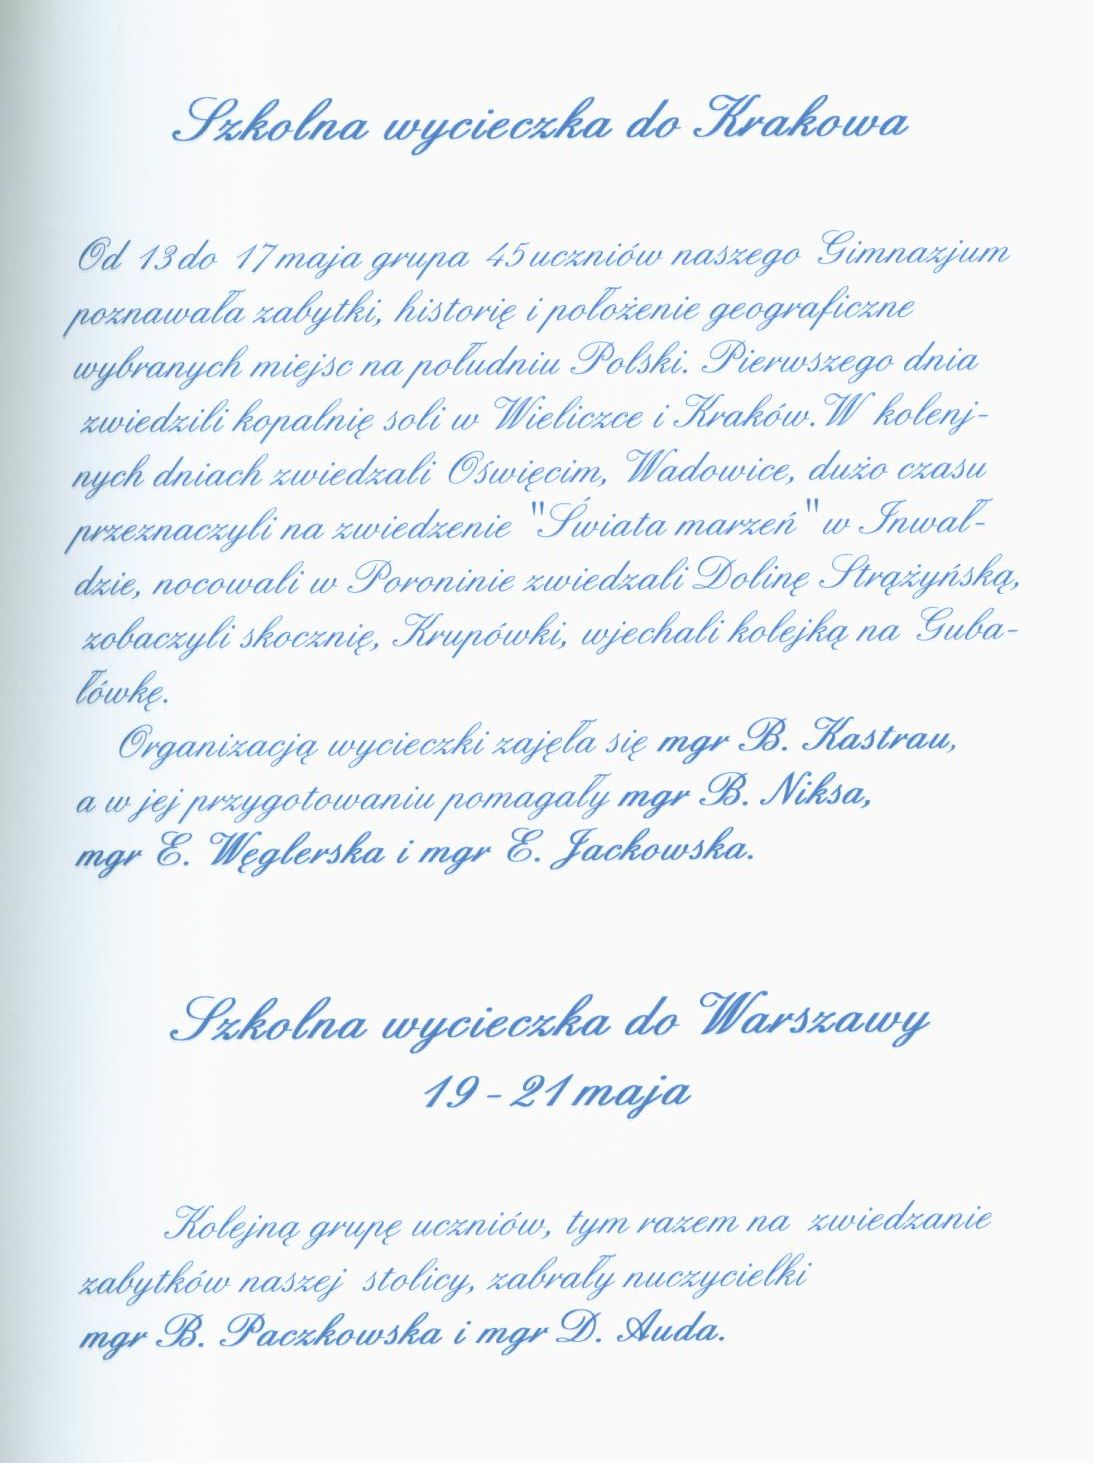 Szkolna wycieczka do Krakowa
Od 13 do 17 maja grupa 45 uczniów naszego Gimnazjum
poznawała zabytki, historię i położenie geograficzne
wybranych miejsc na południu Polski. Pierwszego dnia
zwiedzili kopalnię soli w Wieliczce i Kraków. W kolenj-
nych dniach zwiedzali Oświęcim, Wadowice, dużo czasu
przeznaczyli na zwiedzenie "Świata marzeń" w Inwał-
dzie, nocowali w Poroninie zwiedzali Dolinę Strążyńską,
zobaczyli skocznię, Krupówki, wjechali kolejką na Guba-
łówkę.
Organizacją wycieczki zajęła się mgr B. Kastrau,
a w jej przygotowaniu pomagały mgr B. Niksa,
mgr E. Węglerska i mgr E. Jackowska.
Szkolna wycieczka do Warszawy
19 - 21 maja
Kolejną grupę uczniów, tym razem na zwiedzanie
zabytków naszej stolicy, zabrały nuczycielki
mgr B. Paczkowska i mgr D. Auda.